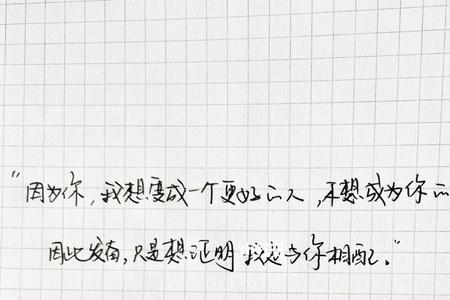 “因为你，我想变成一个更好的人，不想成为你的
因此发奋，只是想证明我足与你相配。”